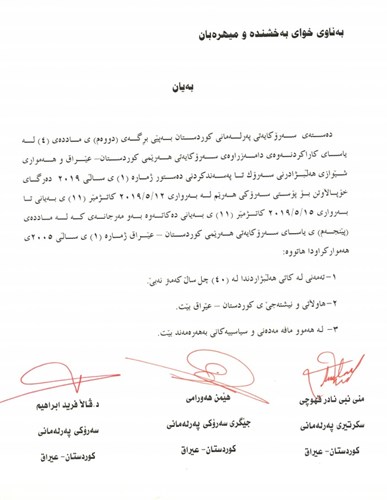 بەناوی خوای بەخشندە و میهرەبان
بەیان
دەستەی سەرۆکایەتی پەرلەمانی کوردستان بەپێی بڕگەی (دووەم) ی ماددەی (٤) لە
یاسای کاراکردنەوەی دامەزراوەی سەرۆکایەتی هەرێمی کوردستان- عێراق و هەمواری
شێوازی هەڵبژاردنی سەرۆک تا پەسەندکردنی دەستور ژمارە (١) ی ساڵی ٢٠١٩ دەرگای
خۆپاڵاوتن بۆ پۆستی سەرۆکی هەرێم لە بەرواری ٢٠١٩/٥/١٢ کاتژمێر (١١) ی بەیانی تا
بەرواری ٢٠١٩/٥/١٥ کاتژمێر (١١) ی بەیانی دەکاتەوە بەو مەرجانەی کە لە ماددەی
(پێنجەم) ی یاسای سەرۆکایەتی هەرێمی کوردستان- عێراق ژمارە (١) ی ساڵی ٢٠٠٥ی
هەموارکراودا هاتووە:
١-تەمەنی لە کاتی هەڵبژاردندا لە (٤٠) چل ساڵ کەمتر نەبێ.
٢-هاوڵاتی و نیشتەجێ ی کوردستان- عێراق بێت.
٣- لە هەموو مافە مەدەنی و سیاسییەکانی بەهرەمەند بێت.
منی نبی نادر قهوچی
سکرتێری پەرلەمانی
کوردستان- عیراق
هێمن هەورامی
جێگری سەرۆکی پەرلەمانی
کوردستان- عیراق
د.ڤالا فرید ابراهیم
سەرۆکی پەرلەمانی
کوردستان- عیراق